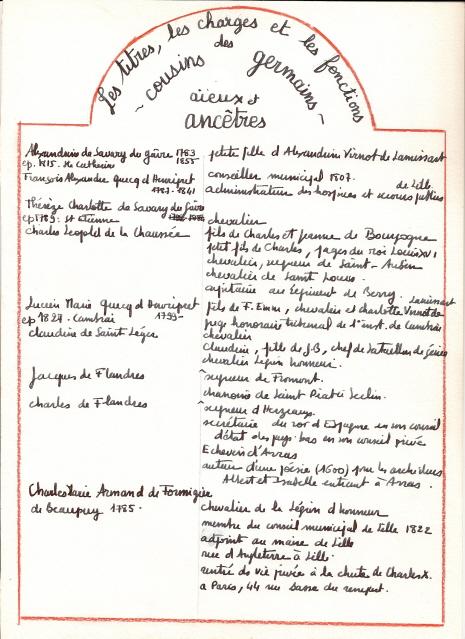 Les titres, les charges et les fonctions
des
~ cousins germains ~
aïeux et
ancêtres
Alexandrine de Savary du Gâvre 1783
ep. 1815. Ste Catherine 1855
François Alexandre Quecq d'Henripret
1787-1841
petite fille d'Alexandrine Virnot de Lamissart
conseiller municipal 1807.
de Lille
administrateur des hospices et secours publics
Thérèze Charlotte de Savary du Gâvre
ep 1789. St Etienne
Charles Leopold de la Chaussée
chevalier
fils de Charles et Jeanne de Bourgogne
petit fils de Charles, pages du roi Louis XVI
chevalier, seigneur de Saint-Aubin
chevalier de Saint Louis.
capitaine au Régiment de Berry.
Lucien Marie Quecq d'Henripret
ep 1827. Cambrai 1795-
claudine de Saint Léger
Lamissart
fils de F. Emm, chevalier et charlotte Virnot de
juge honoraire tribunal de 1e inst. de Cambrai
chevalier
Claudine, fille de J.B, chef de bataillon de génie
chevalier Légion honneur.
Jacques de Flandres
seigneur de Fromont.
chanoine de Saint Piat de Seclin.
charles de Flandres
seigneur d'Herzeaux.
secrétaire du roi d'Espagne en son conseil
d'état des pays-bas en son conseil privé
Echevin d'Arras
auteur d'une poésie (1600) pour les archiducs
Albert et Isabelle entrant à Arras.
Charles Marie Armand de Formigier
de Beaupuy 1785.
chevalier de la Légion d'honneur
membre du conseil municipal de Lille 1822
adjoint au maire de Lille
rue d'Angleterre à Lille.
rentré de vie privée à la chute de Charles X.
a Paris, 44 rue basse du rempart.